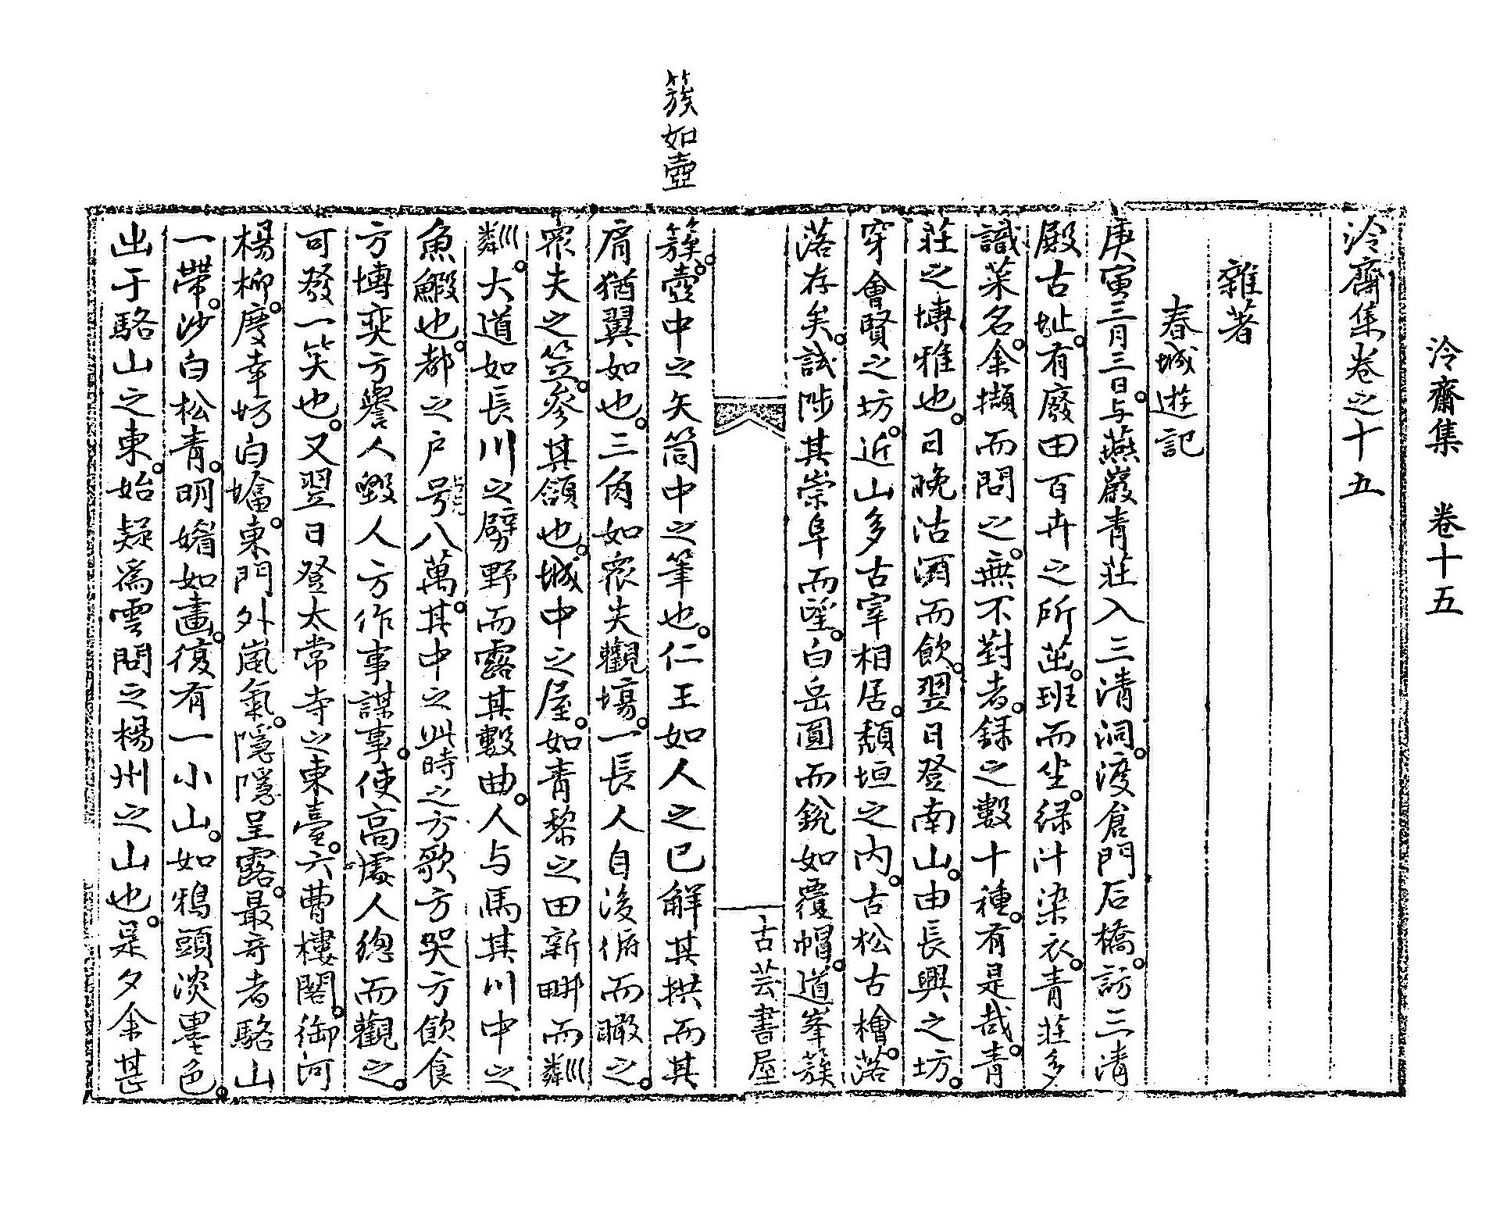 泠齋集 卷十五
泠齋集卷之十五
雜著
春城遊記
庚寅三月三日。与燕巖青莊入三清洞。渡倉門石橋。訪三清
殿古址。有廢田百卉之所茁。班而坐。緑汁染衣。青莊多
識菜名。余擷而問之。無不對者。録之數十種。有是哉。青
莊之博雅也。日晚沽酒而飲。翌日登南山。由長興之坊。
穿會賢之坊。近山多古宰相居。頹垣之内。古松古檜。落
落存矣。試陟其崇阜而望。白岳圓而銳如覆帽。道峯簇
古芸書屋
簇如壺
簇。壺中之矢筒中之筆也。仁王如人之已解其拱而其
肩猶翼如也。三角如衆夫觀場。一長人自後俯而瞰之。
衆夫之笠。參其頷也。城中之屋。如青黎之田新畊而粼
粼。大道如長川之劈野而露其數曲。人与馬其川中之
魚鰕也。都之户号八萬。其中之此時之方歌方哭方飲食
方博奕方譽人毀人方作事謀事。使高處人總而觀之。
可發一笑也。又翌日登太常寺之東臺。六曹樓閣。御河
楊柳。慶幸坊白塔。東門外嵐氣。隱隱呈露。最奇者駱山
一帶。沙白松青。明媚如畫。復有一小山。如鴉頭淡墨色
出于駱山之東。始疑爲雲問之楊州之山也。是夕余甚